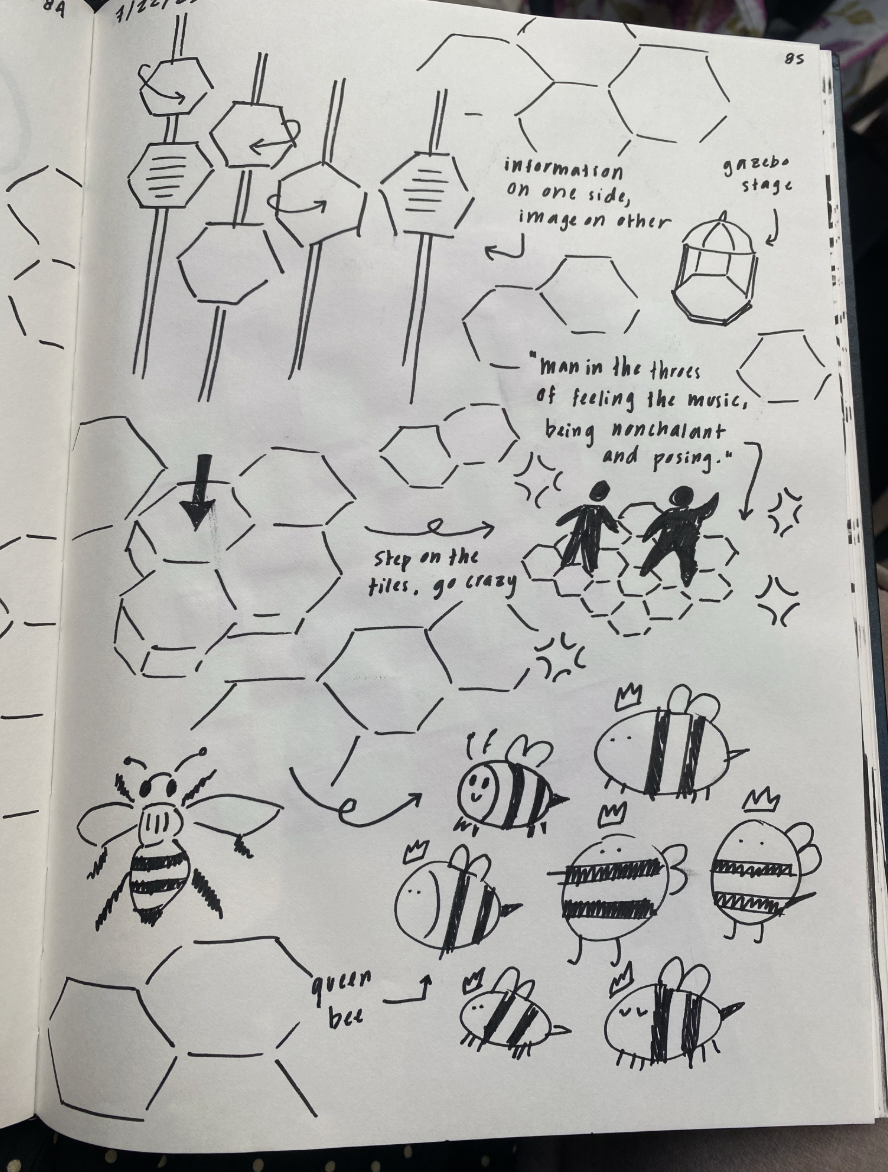 84
85
information
on one side,
image on other
gazebo
stage
"man in the throes
of feeling the music,
being nonchalant
and posing."
step on the
tiles, go crazy
queen
bee